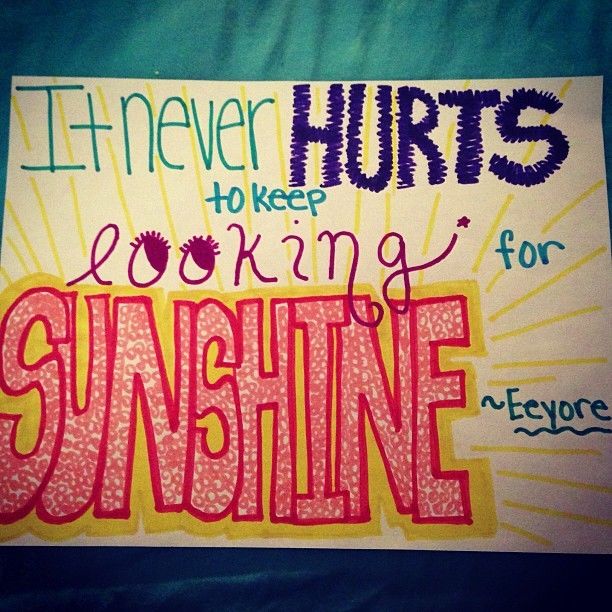 It never HURTS
to keep
looking for
SUNSHINE
~Eeyore